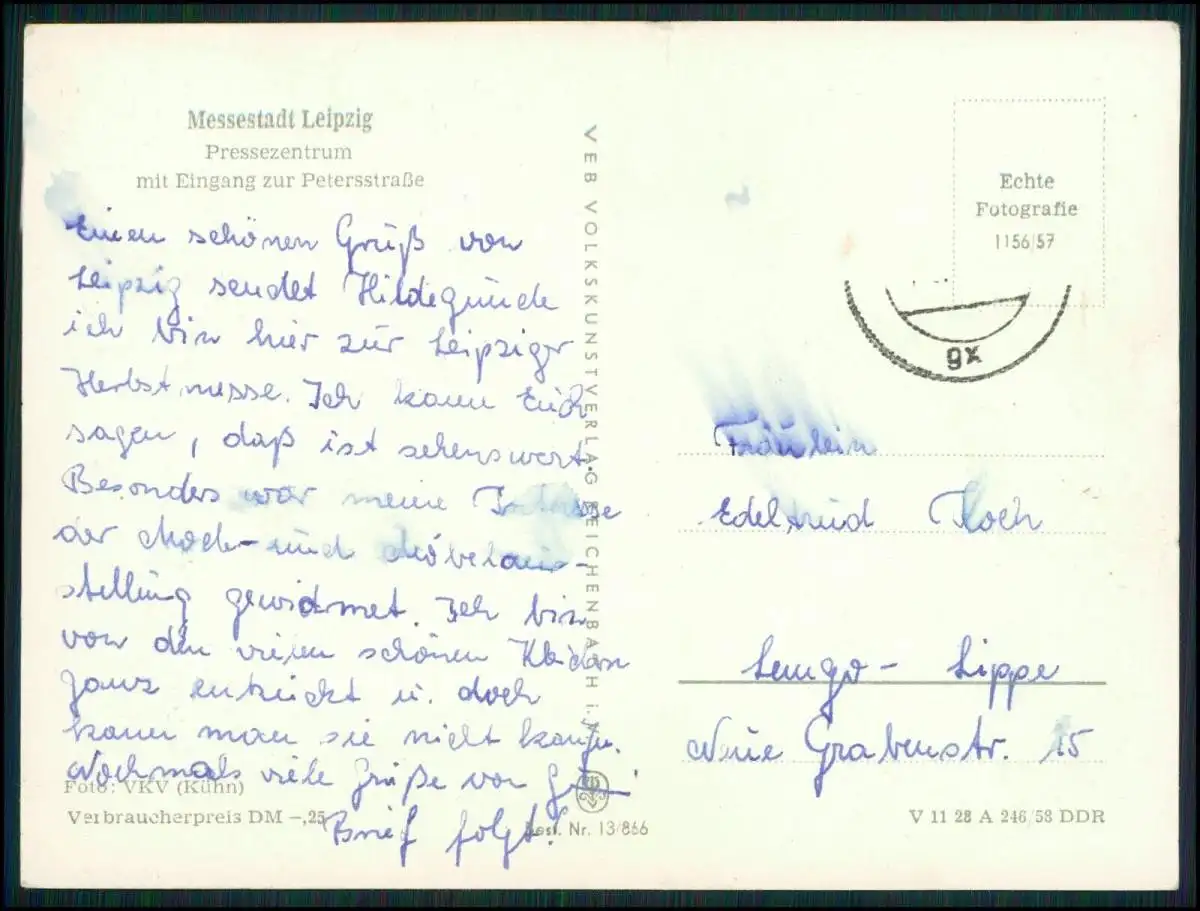 Messestadt Leipzig
Pressezentrum
mit Eingang zur Petersstraße
Einen schönen Gruß von
Leipzig sendet Hildegunde
ich bin hier zur Leipziger
Herbstmesse. Ich kann Euch
sagen, daß ist sehenswert.
Besonders war meine
der Mode- und Möbelaus-
stellung gewidmet. Ich bin
von den vielen schönen Kleidern
ganz entzückt u. doch
kann man sie nicht kaufen.
Nochmals viele Grüße von
Brief folgt!
Foto: VKV (Kühn)
Verbraucherpreis DM –,25
Best. Nr. 13/866
VEB VOLKSKUNSTVERLAG REICHENBACH I. V.
Echte
Fotografie
1156/57
gx
Fräulein
Edeltrud Koch
Lemgo - Lippe
Neue Grabenstr. 15
V 11 28 A 246/58 DDR